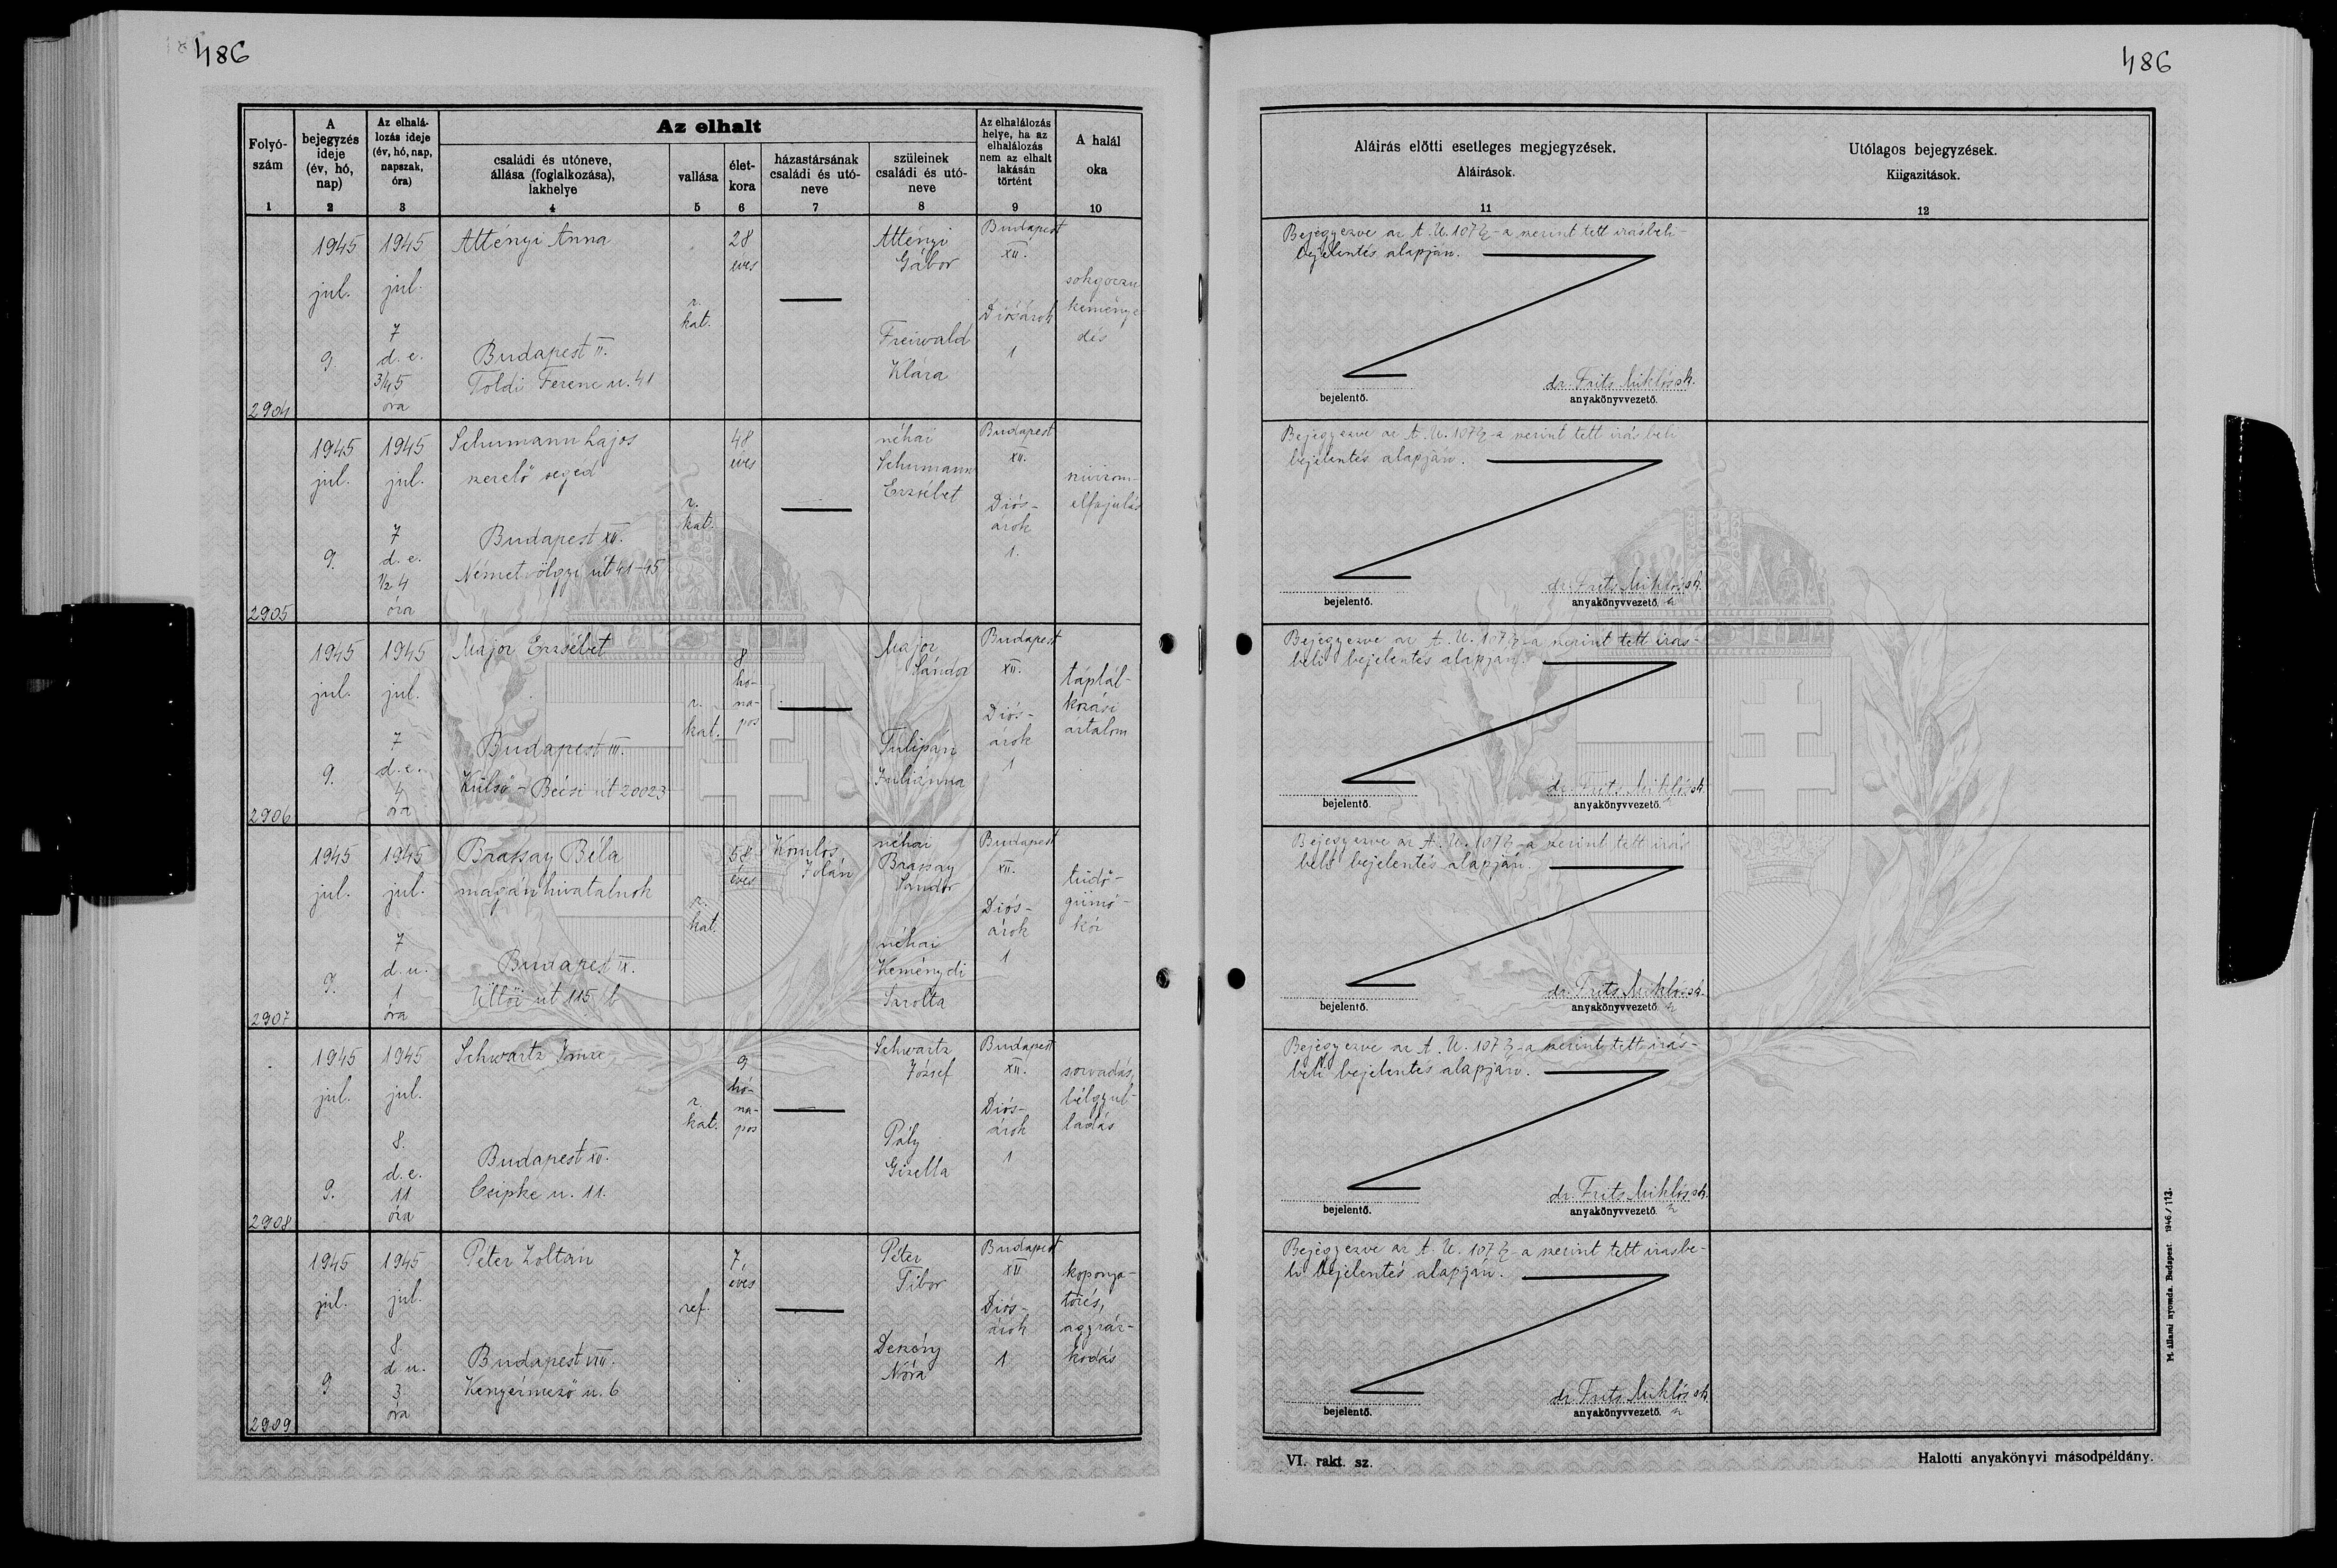 486
Folyó-
szám
A
bejegyzés
ideje
(év, hó,
nap)
Az elhalá-
lozás ideje
(év, hó, nap,
napszak,
óra)
Az elhalt
családi és utóneve,
állása (foglalkozása),
lakhelye
vallása
élet-
kora
házastársának
családi és utó-
neve
szüleinek
családi és utó-
neve
Az elhalálozás
helye, ha az
elhalálozás
nem az elhalt
lakásán
történt
A halál
oka
1 2 3 4 5 6 7 8 9 10
2904
1945
jul.
9.
1945
jul.
7
d. e.
3/4 5
óra
Attényi Anna
Budapest II.
Toldi Ferenc u. 41
r.
kat.
28
éves
Attényi
Gábor
Freiwald
Klára
Budapest
XII.
Diósárok
1
sokgócú
keménye-
dés
2905
1945
jul.
9.
1945
jul.
7
d. e.
1/2 4
óra
Schumann Lajos
szerelő segéd
Budapest XII.
Németvölgyi út 41-45
r.
kat.
48
éves
néhai
Schumann
Erzsébet
Budapest
XII.
Diós-
árok
1.
szívizom-
elfajulás
2906
1945
jul.
9.
1945
jul.
7
d. e.
4
óra
Major Erzsébet
Budapest III.
Külső-Bécsi út 20023
r.
kat.
8
hó-
na-
pos
Major
Sándor
Tulipán
Juliánna
Budapest
XII.
Diós-
árok
1
táplál-
kozási
ártalom
2907
1945
jul.
9.
1945
jul.
7
d. u.
1
óra
Brassay Béla
magánhivatalnok
Budapest IX.
Üllői út 115/b
r.
kat.
58
éves
Komlos
Jolán
néhai
Brassay
Sándor
néhai
Keménydi
Sarolta
Budapest
XII.
Diós-
árok
1
tüdő-
gümő-
kór
2908
1945
jul.
9.
1945
jul.
8.
d. e.
11
óra
Schwartz Imre
Budapest XV.
Csipke u. 11.
r.
kat.
9
hó-
na-
pos
Schwartz
József
Pály
Gizella
Budapest
XII.
Diós-
árok
1
sorvadás,
bélgyul-
ladás
2909
1945
jul.
9
1945
jul.
8.
d. u.
3
óra
Péter Zoltán
Budapest VIII.
Kenyérmező u. 6
ref.
7
éves
Péter
Tibor
Nóra
Budapest
XII
Diós-
árok
1
koponya-
törés,
agyráz-
kódás
486
Aláirás előtti esetleges megjegyzések.
Aláirások.
11
Utólagos bejegyzések.
Kiigazitások.
12
Bejegyezve az A. U. 107 §-a szerint tett irásbeli-
bejelentés alapján.
bejelentő.
dr. Frits Miklós sk.
anyakönyvvezető.
Bejegyezve az A. U. 107 §-a szerint tett irásbeli
bejelentés alapján.
bejelentő.
dr. Frits Miklós sk.
anyakönyvvezető.
Bejegyezve az A. U. 107 §-a szerint tett irás-
beli bejelentés alapján.
bejelentő.
dr. Frits Miklós sk.
anyakönyvvezető.
Bejegyezve az A. U. 107 §-a szerint tett irás
beli bejelentés alapján.
bejelentő.
dr. Frits Miklós sk.
anyakönyvvezető.
Bejegyezve az A. U. 107 §-a szerint tett irás-
beli bejelentés alapján.
bejelentő.
dr. Frits Miklós sk.
anyakönyvvezető.
Bejegyezve az A. U. 107 §-a szerint tett irásbe-
li bejelentés alapján.
bejelentő.
dr. Frits Miklós sk.
anyakönyvvezető.
VI. rakt. sz.
Halotti anyakönyvi másodpéldány.
M. állami nyomda. Budapest. 1946./112.